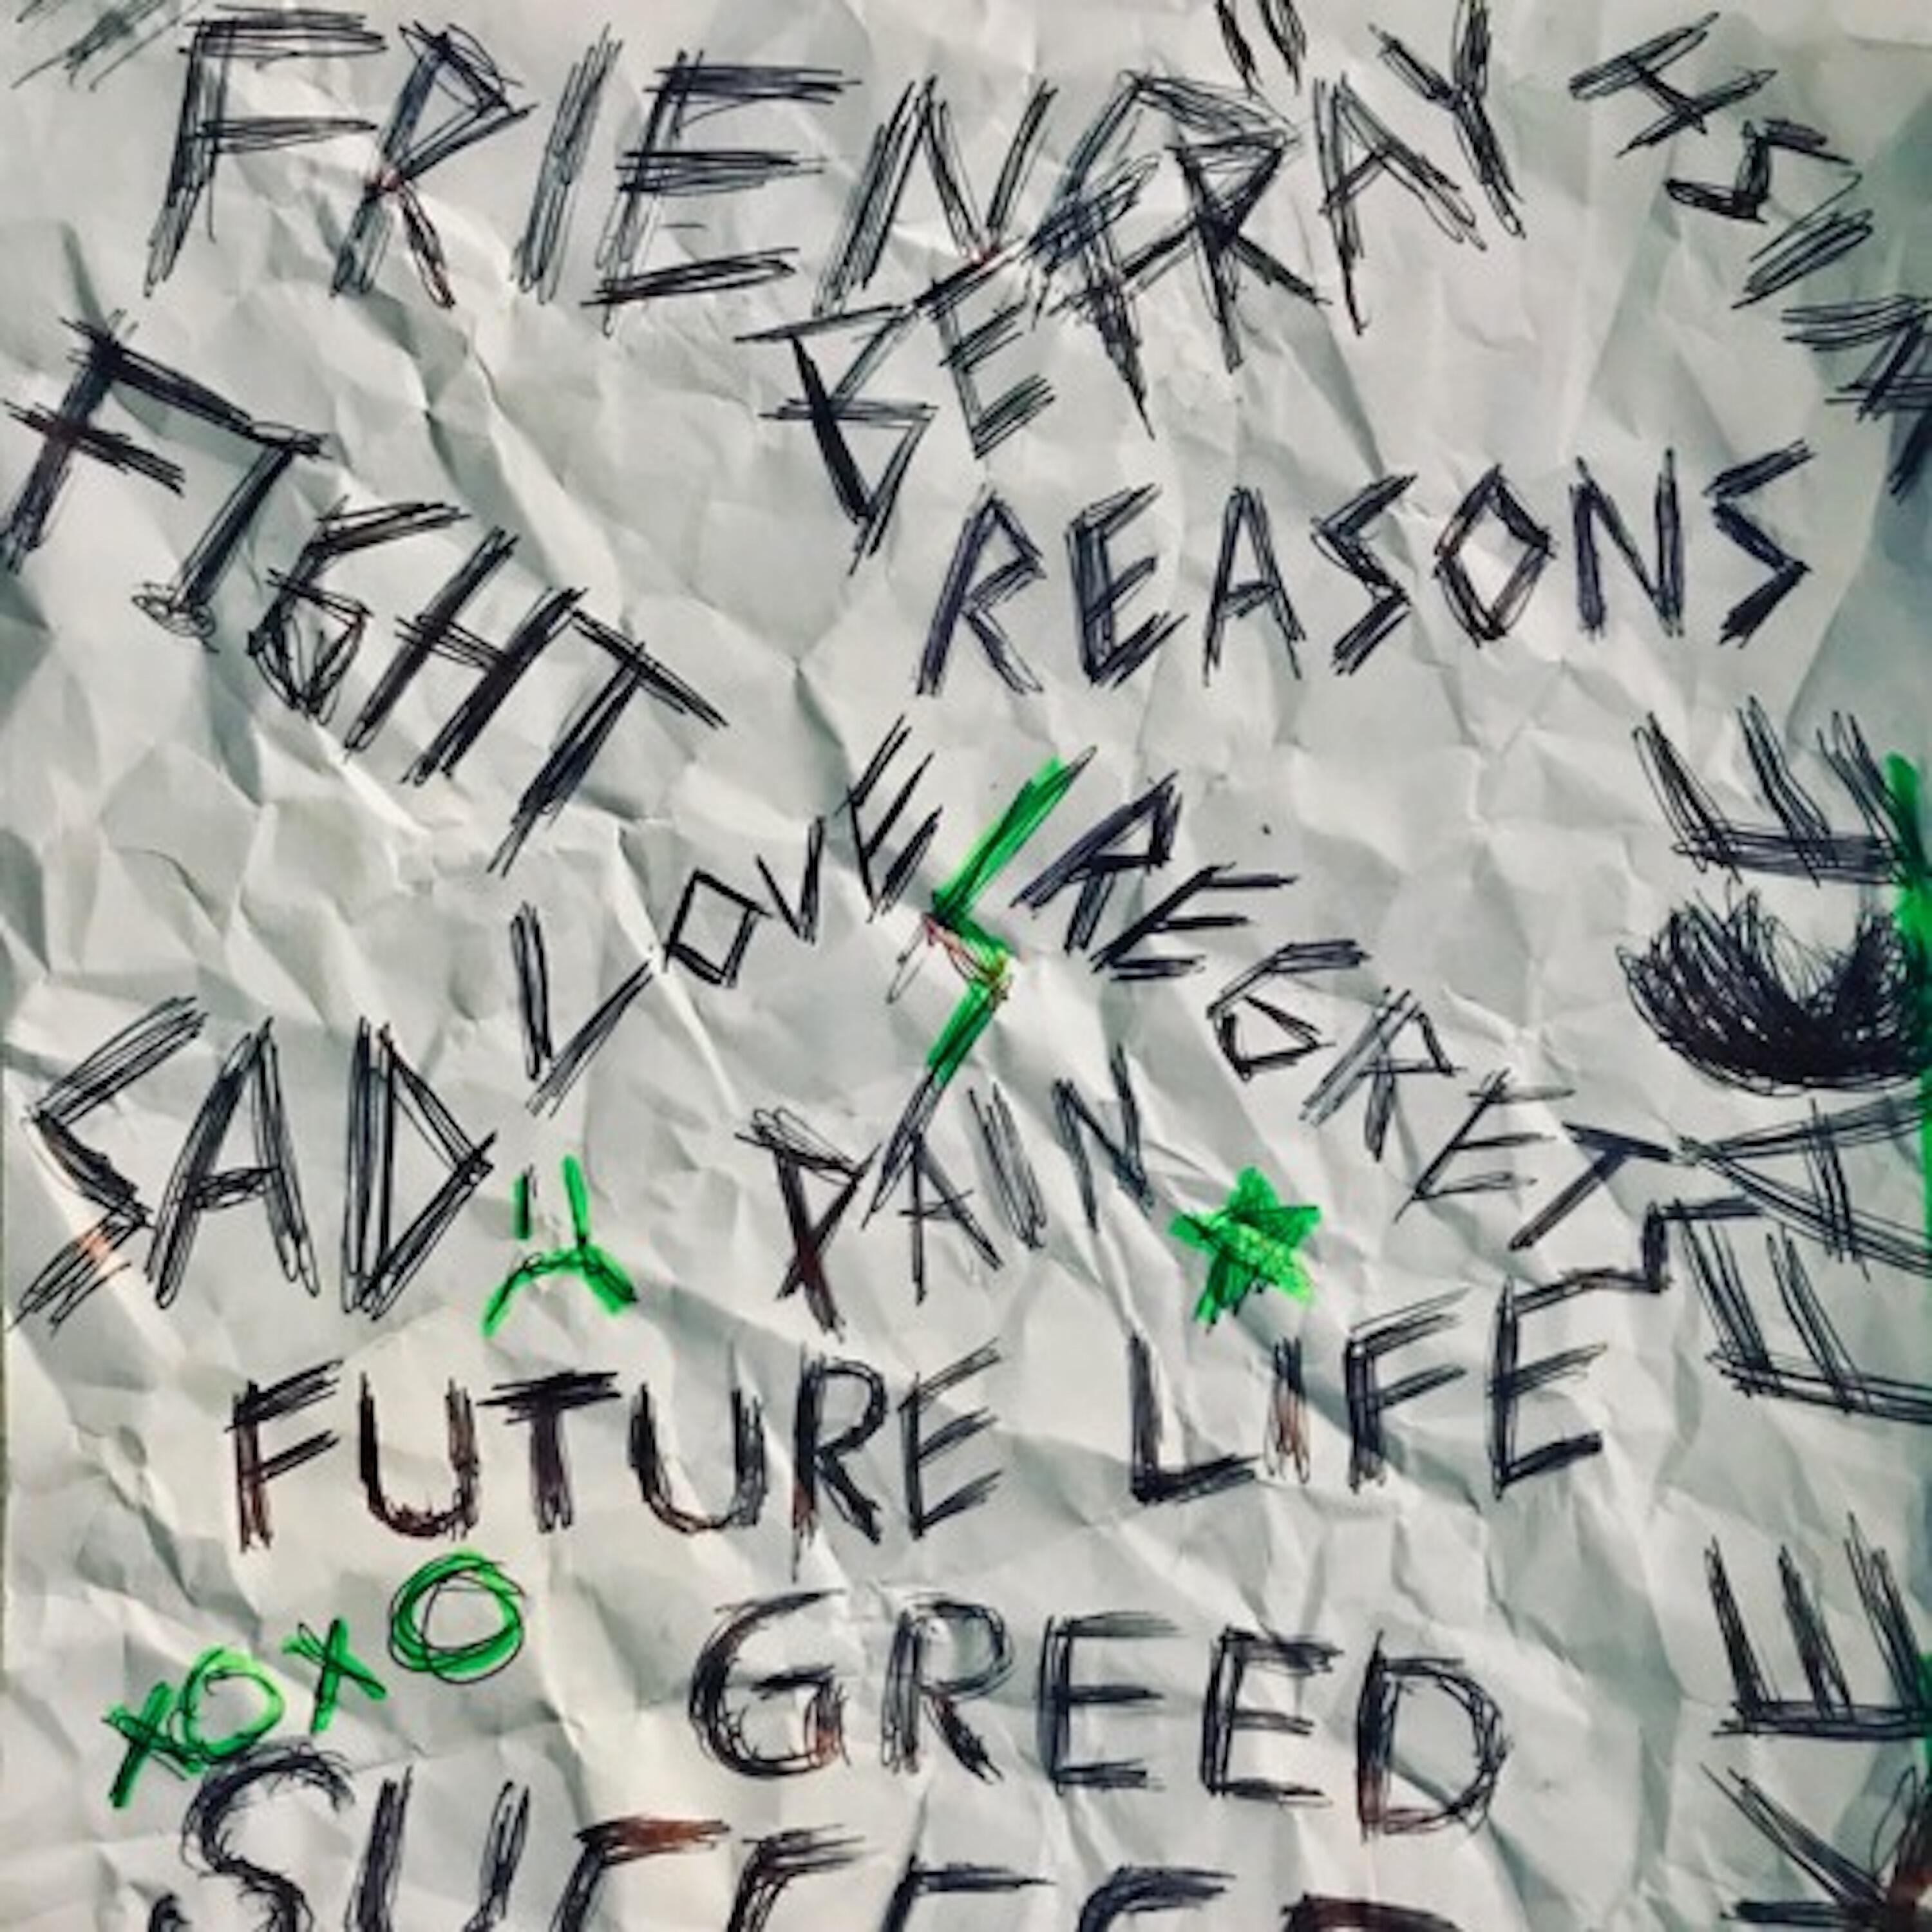 FRIEND
BETRAY
FIGHT
REASONS
LOVE
REGRET
SAD
PAIN
FUTURE LIFE
XOXO
GREED
SUCCEED